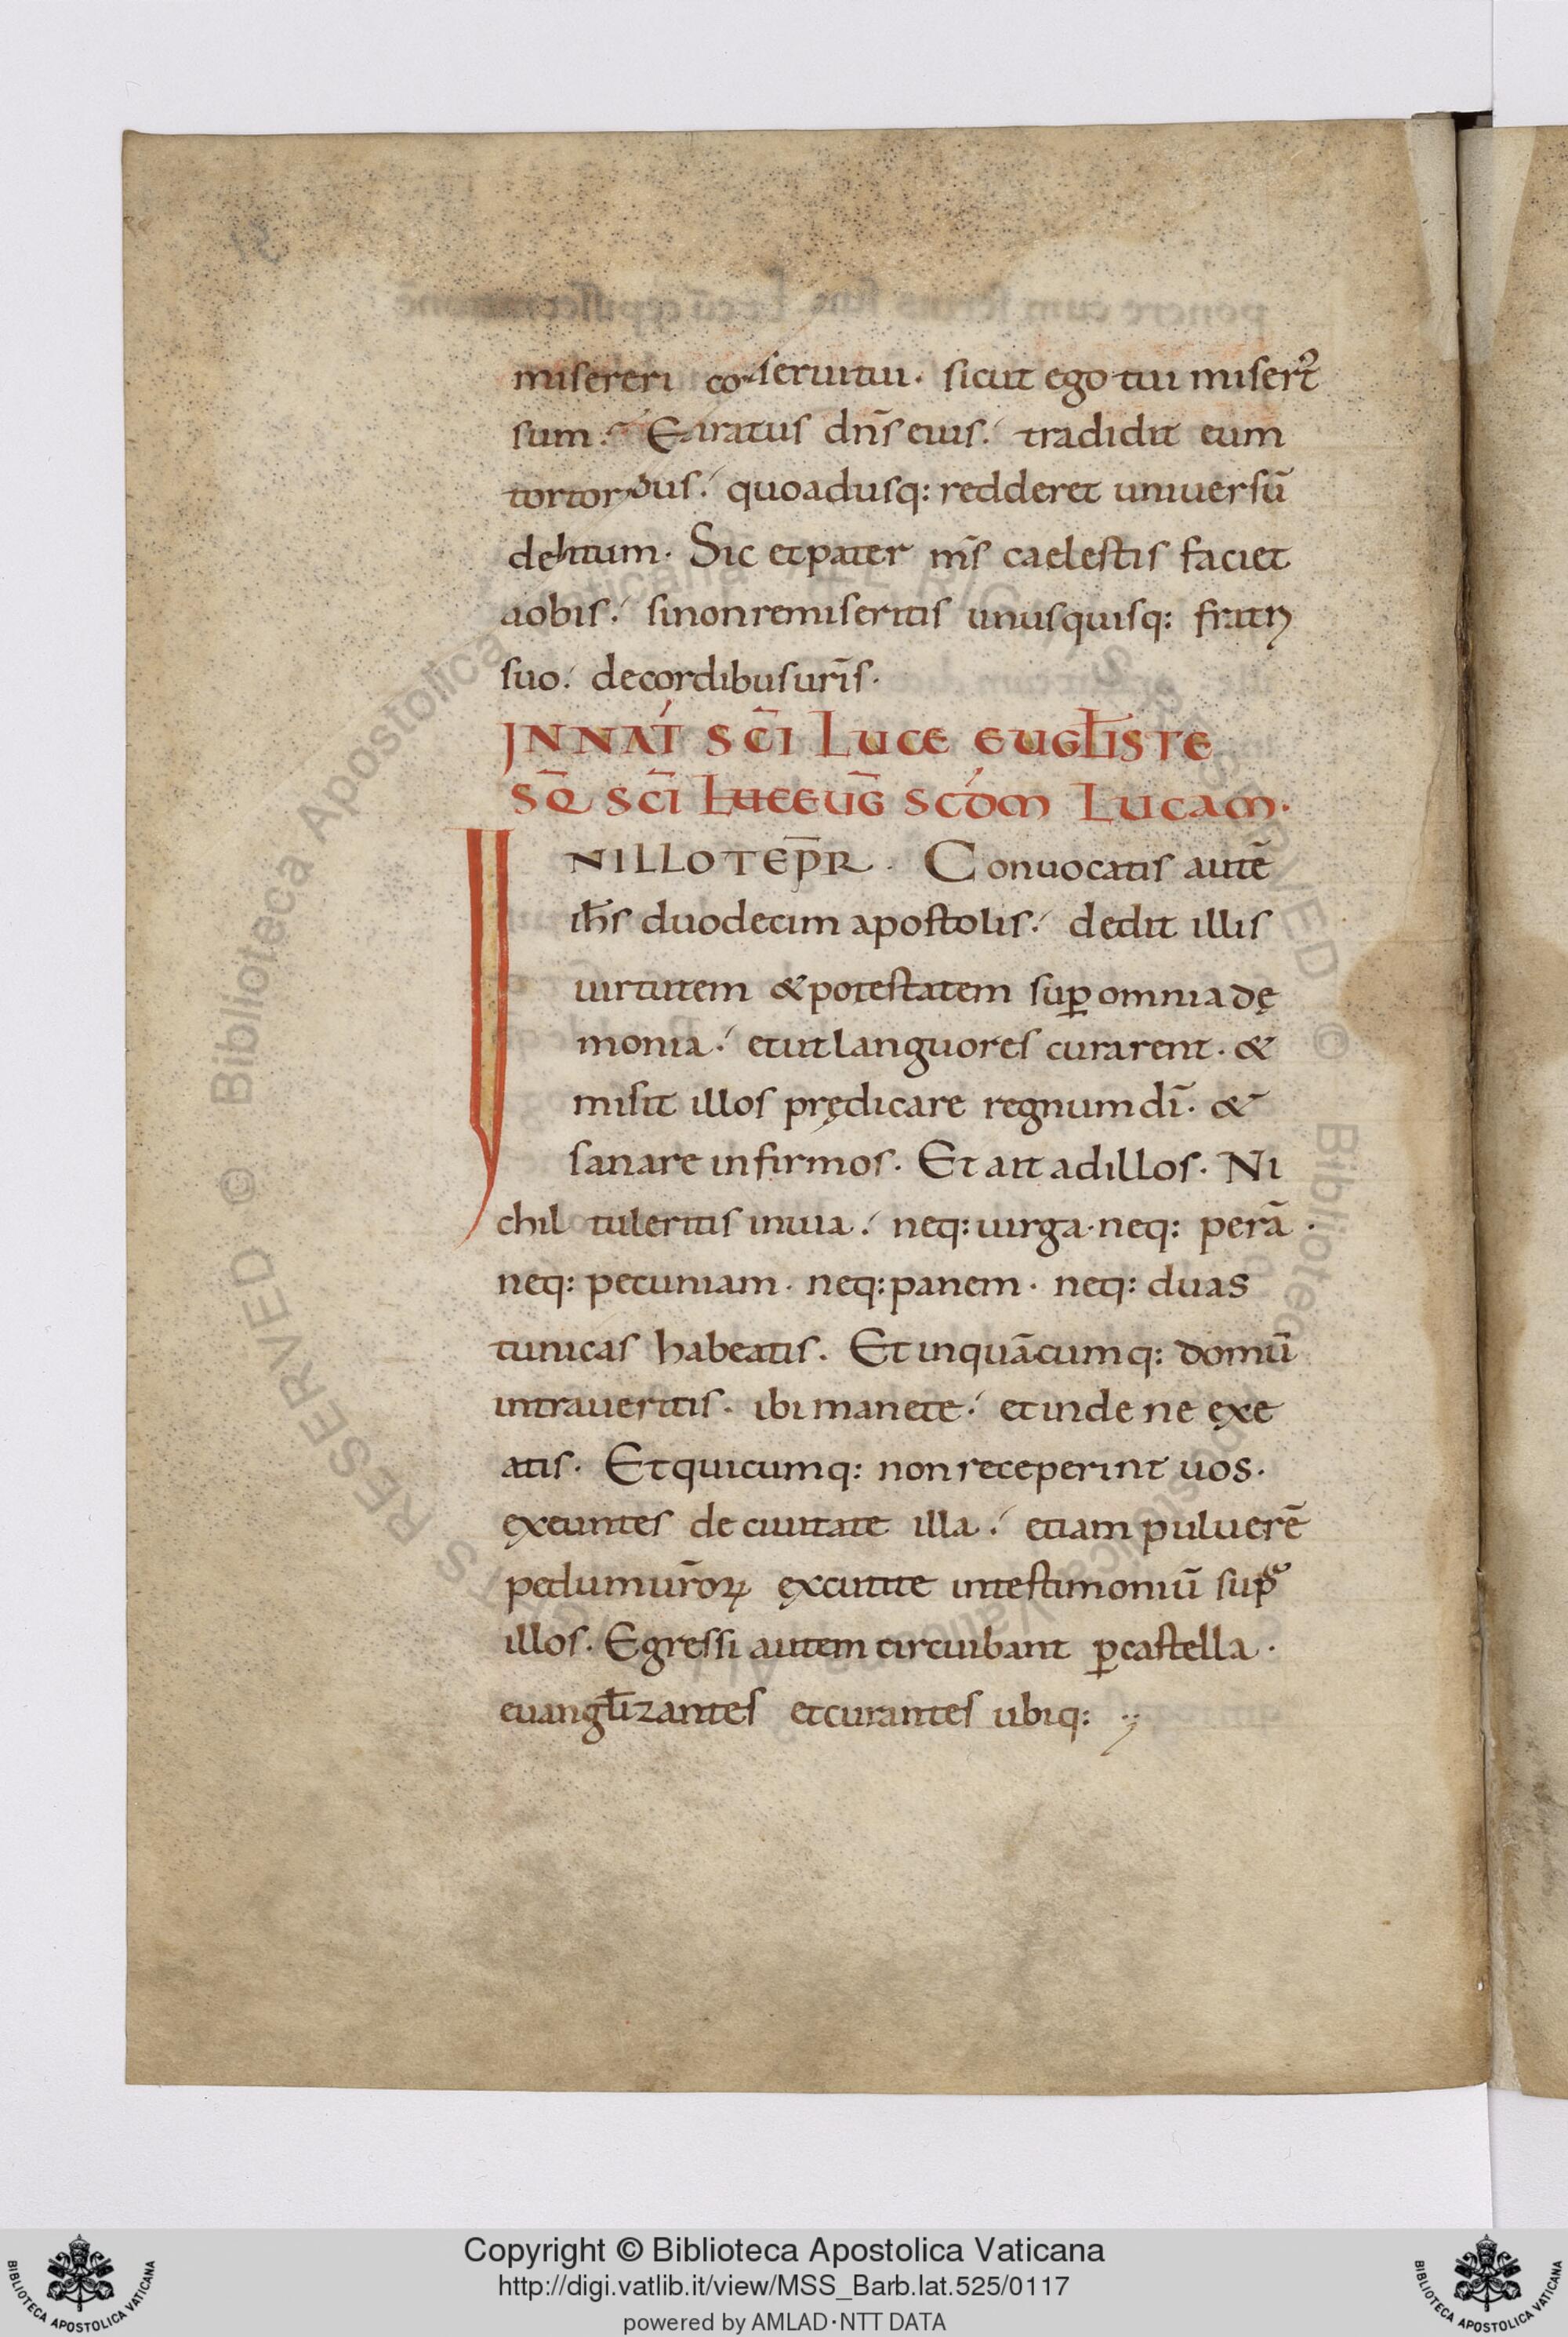 misereri conserui tui. sicut ego tui misert᾿
sum. Et iratus dn̄s eius. tradidit eum
tortoribus. quoadusq: redderet uniuersū
debitum. Sic et pater m̄s caelestis faciet
uobis. si non remiseritis unusquisq: fratri
suo. de cordibus ur̄is.
IN NAT̄ SC̄I LUCE EUGL̄ISTE
SQ̄ SC̄I EUḠ SCDM LUCAM.
IN ILLO TEP̄R. Conuocatis autē
ih̄s duodecim apostolis. dedit illis
uirtutem & potestatem suꝑ omnia dę
monia. et ut languores curarent. &
misit illos prędicare regnum dī. &
sanare infirmos. Et ait ad illos. Ni
chil tuleritis in uia. neq: uirga. neq: perā.
neq: pecuniam. neq: panem. neq: duas
tunicas habeatis. Et in quācumq: domū
intraueritis. ibi manete. et inde ne exe
atis. Et quicumq: non receperint uos.
exeuntes de ciuitate illa. etiam puluerē
pedum ur̄oꝝ excutite in testimoniū sup̄
illos. Egressi autem circuibant ꝑ castella.
euangl̄izantes et curantes ubiq:
Copyright © Biblioteca Apostolica Vaticana
http://digi.vatlib.it/view/MSS_Barb.lat.525/0117
powered by AMLAD·NTT DATA
BIBLIOTECA APOSTOLICA VATICANA
BIBLIOTECA APOSTOLICA VATICANA